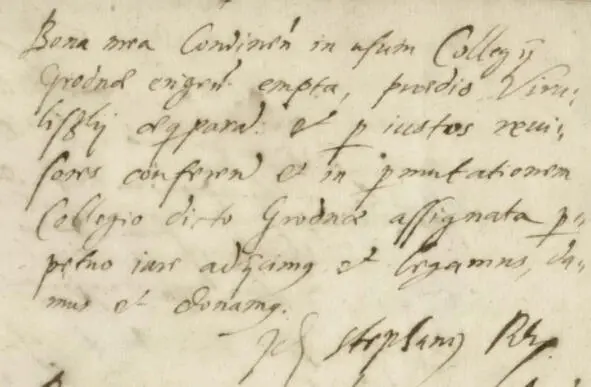 Bona mea Condinen̄ in usum Collegij
Grodnæ erigen̄ empta, prædio Viru-
liszkij æqpara: et p iustos reui-
sores conferen̄ et in pmutationem
Collegio dicto Grodnæ assignata p-
petuo iure adijcimq et legamus, da-
mus et donamq.
Stephanq Rx.